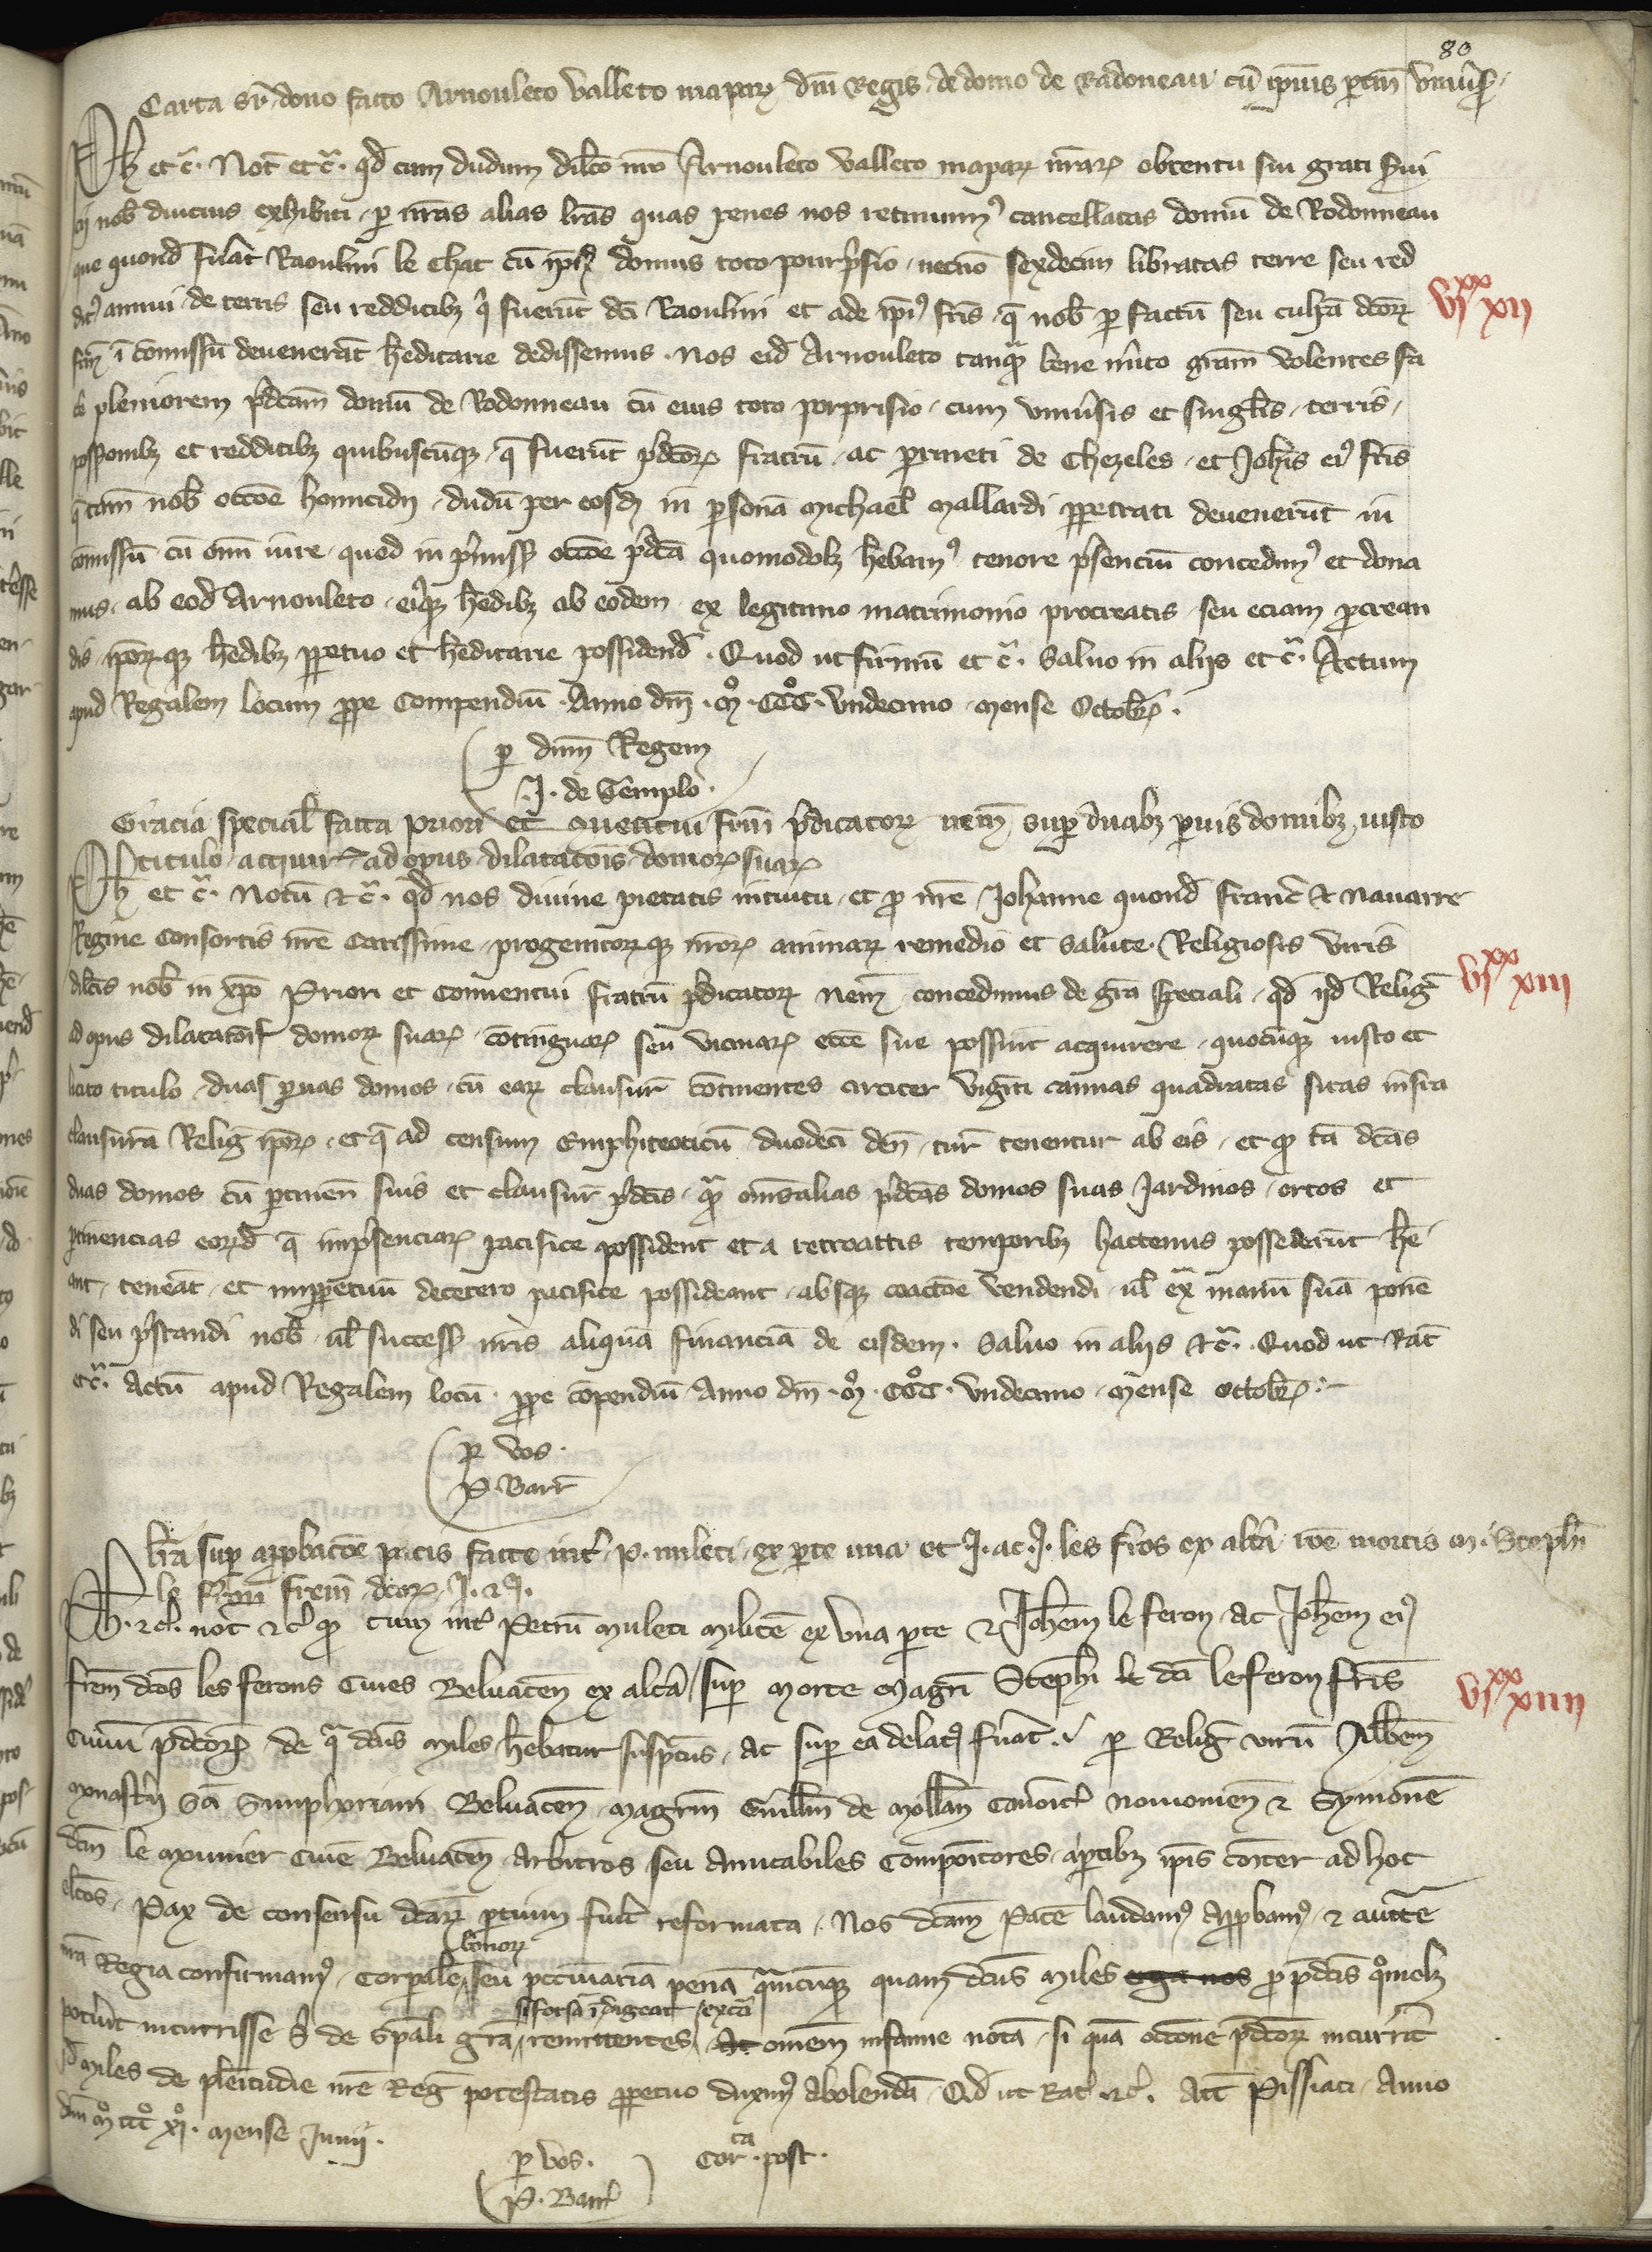 80
Carta sr̃ dono facto Arnouleto valleto mapaꝝ dñi Regis de domo de Radoneau cũ ipius ꝑtin̄ vniuẽrs
Ph̃ et c̃. Not̃ et c̃. qd̃ cum dudum dilc̃o nr̃o Arnouleto valleto mapaꝝ nr̃aꝝ obtentu sui grati ẽui
cij nob̃ diucius exhibiti ꝑ nr̃as alias lr̃as quas penes nos retinuimꝰ cancellatas domũ de Rodonneau
que quond̃ fu̾at Raoulini le Chat cũ ipiꝰ domus toto pourp̃sio necnõ sexdecim libratas terre seu red
ditꝰ annui de terris seu redditibꝫ q̃ fuerũt dc̃i Raoulini et ade ipiꝰ fr̃is q̃ nob̃ ꝑ factũ seu culpã dc̃oꝝ
fr̃m ĩ comissũ deuenerãt h̃editarie dedissemus. Nos eid̃ Arnouleto tanq̃ bene m̃ito gr̃am volentes fa
c̾e pleniorem p̃dc̃am domũ de Rodonneau cũ eius toto porprisio cum vniũsis et singl̃is terris
possionibꝫ et redditibꝫ quibuscũqꝫ q̃ fuerũt p̃dc̃oꝝ fratrũ ac perrineti de Chezeles et Joh̃is eiꝰ fr̃is
q̃ tam nob̃ occõe homicidij dudũ per eosd̃ in ꝑsonã Michael̃ Mallardi ꝑpetrati deuenerũt in
comissũ cũ om̃i iure quod in p̃missꝭ occõe p̃dc̃a quomodolꝫ h̃ebamꝰ tenore p̃senciũ concedimꝰ et dona
mus ab eod̃ Arnouleto eiꝰqꝫ h̃edibꝫ ab eodem ex legitimo matrimonio procreatis seu eciam ꝓcrean
dis ipoꝝqꝫ h̃edibꝫ ꝑpetuo et h̃editarie possidend̃. Quod ut firmũ et c̃. Saluo in alijs et c̃. Actum
apud Regalem locum ꝓpe Compendiũ Anno dñi .Mº.CCCº. vndecimo mense Octobꝝ.
ꝑ dñm Regem
J. de Templo.
Gracia special̃ facta priori et cõuentui fr̃m p̃dicatoꝝ nem̃ sup̱ duabꝫ ꝑuis domibꝫ iusto
titulo acquir̃ ad opus dilatacõis domoꝝ suaꝝ
Ph̃ et c̃. Notũ ⁊ c̃. qd̃ nos diuine pietatis intuitu et ꝓ nr̃e Johanne quond̃ franc̃ ⁊ nauarre
Regine Consortis nr̃e carissime progenitoꝝqꝫ nr̃oꝝ animaꝝ remedio et salute Religiosis viris
dilc̃is nob̃ in xp̃o Priori et Conuentui fratrũ p̃dicatoꝝ nem̃ concedimus de gr̃a speciali qd̃ ijd̃ Relig̃
ad opus dilatacõis domoꝝ suaꝝ cõtinguaꝝ seu vicinaꝝ ecc̃e sue possint acquirere quocũqꝫ iusto et
licito titulo duas ꝑuas domos cũ eaꝝ clausur̃ cõtinentes circiter viginti cannas quadratas sitas infra
clausurã Relig̃ ipoꝝ et q̃ ad censum Emphiteoticũ duodecĩ deñ tur̃ tenentur ab eis et qd̃ tã dc̃as
duas domos cũ ꝑtineñ suis et clausur̃ p̃dc̃is q̃ om̃s alias p̃dc̃as domos suas Jardinos ortos et
ꝑtinencias eoꝝd̃ q̃ imp̃senciaꝝ pacifice possident et a retroactis temporibꝫ hactenus possederũt h̃e
ant teneãt et imꝑpetuũ decetero pacifice possideant absqꝫ coaccõe vendendi ul̃ ex̃ manũ suã ponẽ
di seu p̃standi nob̃ ul̃ successꝭ nr̃is aliquã financiã de eisdem. Saluo in alijs ⁊ c̃. Quod ut Rat̃
et c̃. Actũ apud Regalem locũ ꝓpe cõpendiũ Anno dñi .Mº.CCCº. vndecimo mense octobꝝ.
ꝑ vos.
P. Barr̃
lr̃a sup̱ apꝓbacõe pacis facte int̾ P. muleti ex ꝑte una et J. ac J. les fr̃os ex alt̾a rõe mortis M. Stepħi
le feron frem̃ dc̃oꝝ J. ⁊ J.
Ph̃. ⁊ c̃. not̃ ⁊ c̃ qd̃ cum int̾ Petrũ muleti militẽ ex vna ꝑte ⁊ Joh̃em le feron ac Joh̃em eiꝰ
frem̃ dc̃os les ferons Ciues Beluaceñ ex alt̾a sup̱ morte Magr̃i Stepħi dc̃i le feron fr̃is
Ciuiũ p̃dc̃oꝝ de q̃ dc̃us miles h̃ebatur susp̃ctus ac sup̱ ea delatꝰ fu̾at ꝑ Relig̃ virũ Abbẽm
monast̾ij Sc̃i Simphoriani Beluaceñ magr̃m Guill̃m de Canõic̃ nouiomeñ ⁊ Symonẽ
dc̃m le monnier Ciuẽ Beluaceñ Arbitros seu Amicabiles compositores a ꝑtibꝫ ip̃is cõiter ad hoc
elc̃os. Pax de consensu dc̃aꝝ ꝑtium fu̾it reformata. Nos dc̃am pacẽ laudamꝰ apꝓbamꝰ ⁊ auctẽ
nr̃a Regia confirmamꝰ. Corꝑalẽ bonoꝝ seu peccuniariã penã q̃mcũqꝫ quam dc̃us miles erga nos ꝓ p̃dc̃is qºmolꝫ
pot̾uit incurrisse sꝫ de spãli gr̃a si forsã ĩdigeat remittentes ex c̾ta Ac om̃em infamie notã si quã occõne p̃dc̃oꝝ incurr̾it
id̃ miles de plenitudie nr̃e Reg̃ potestatis ꝑpetuo duximꝰ abolendã. Qd̃ ut Rat̃ ⁊ c̃. Act̃ Pissiaci Anno
dñi Mº CCCº XJº. mense Junij.
ꝑ vos. Corᶜᵃ. post.
P. Barr̃
VJˣˣ XII
VJˣˣ XIII
VJˣˣ XIIII